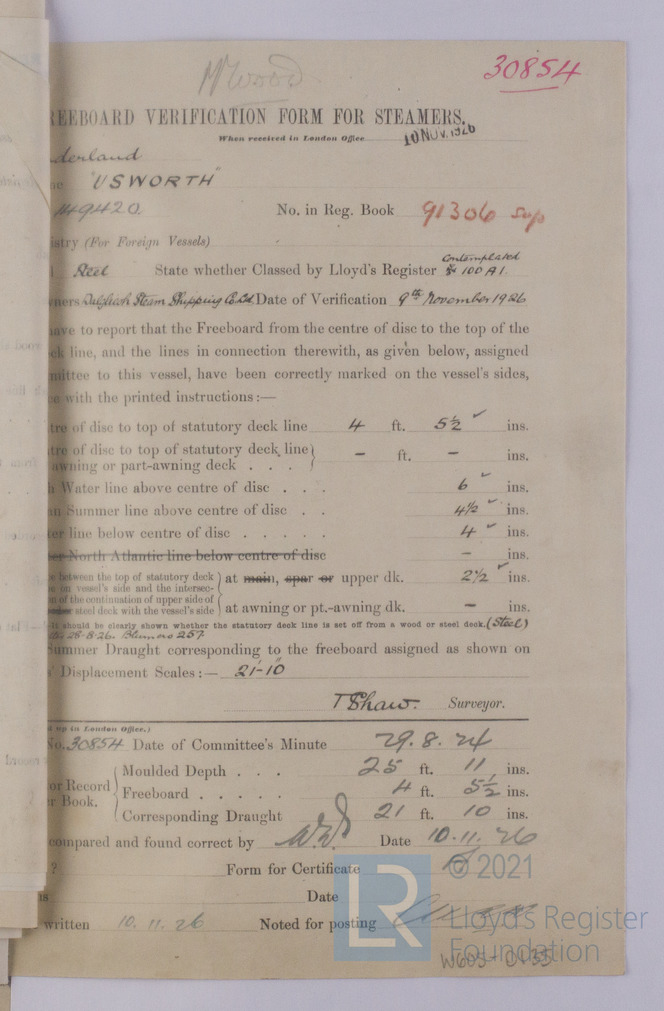 W Wood
30854
REEBOARD VERIFICATION FORM FOR STEAMERS.
When received in London Office 10 NOV. 1926
derland
ne "USWORTH"
149420. No. in Reg. Book 91306 sup
istry (For Foreign Vessels)
Steel State whether Classed by Lloyd's Register Contemplated 100 A1.
ners Dalgliesh Steam Shipping Co Ltd. Date of Verification 9th November 1926
ave to report that the Freeboard from the centre of disc to the top of the
ck line, and the lines in connection therewith, as given below, assigned
mittee to this vessel, have been correctly marked on the vessel's sides,
e with the printed instructions:—
tre of disc to top of statutory deck line 4 ft. 5½ ins.
tre of disc to top of statutory deck line
awning or part-awning deck . . . – ft. – ins.
h Water line above centre of disc . . . 6 ins.
an Summer line above centre of disc . . 4½ ins.
er line below centre of disc . . . . . 4 ins.
er North Atlantic line below centre of disc – ins.
e between the top of statutory deck
e on vessel's side and the intersec- at main, spar or upper dk. 2½ ins.
on of the continuation of upper side of
steel deck with the vessel's side at awning or pt.-awning dk. – ins.
It should be clearly shown whether the statutory deck line is set off from a wood or steel deck. (Steel)
28-8-26. 257
Summer Draught corresponding to the freeboard assigned as shown on
' Displacement Scales:— 21'-10"
T Shaw. Surveyor.
d up in London Office.)
No. 30854 Date of Committee's Minute 29.8.24
Moulded Depth . . . 25 ft. 11 ins.
or Record
r Book. Freeboard . . . . . 4 ft. 5½ ins.
Corresponding Draught 21 ft. 10 ins.
compared and found correct by Date 10.11.26
? Form for Certificate
ns Date
written 10.11.26 Noted for posting
LR © 2021
Lloyd's Register
Foundation
W605-0135